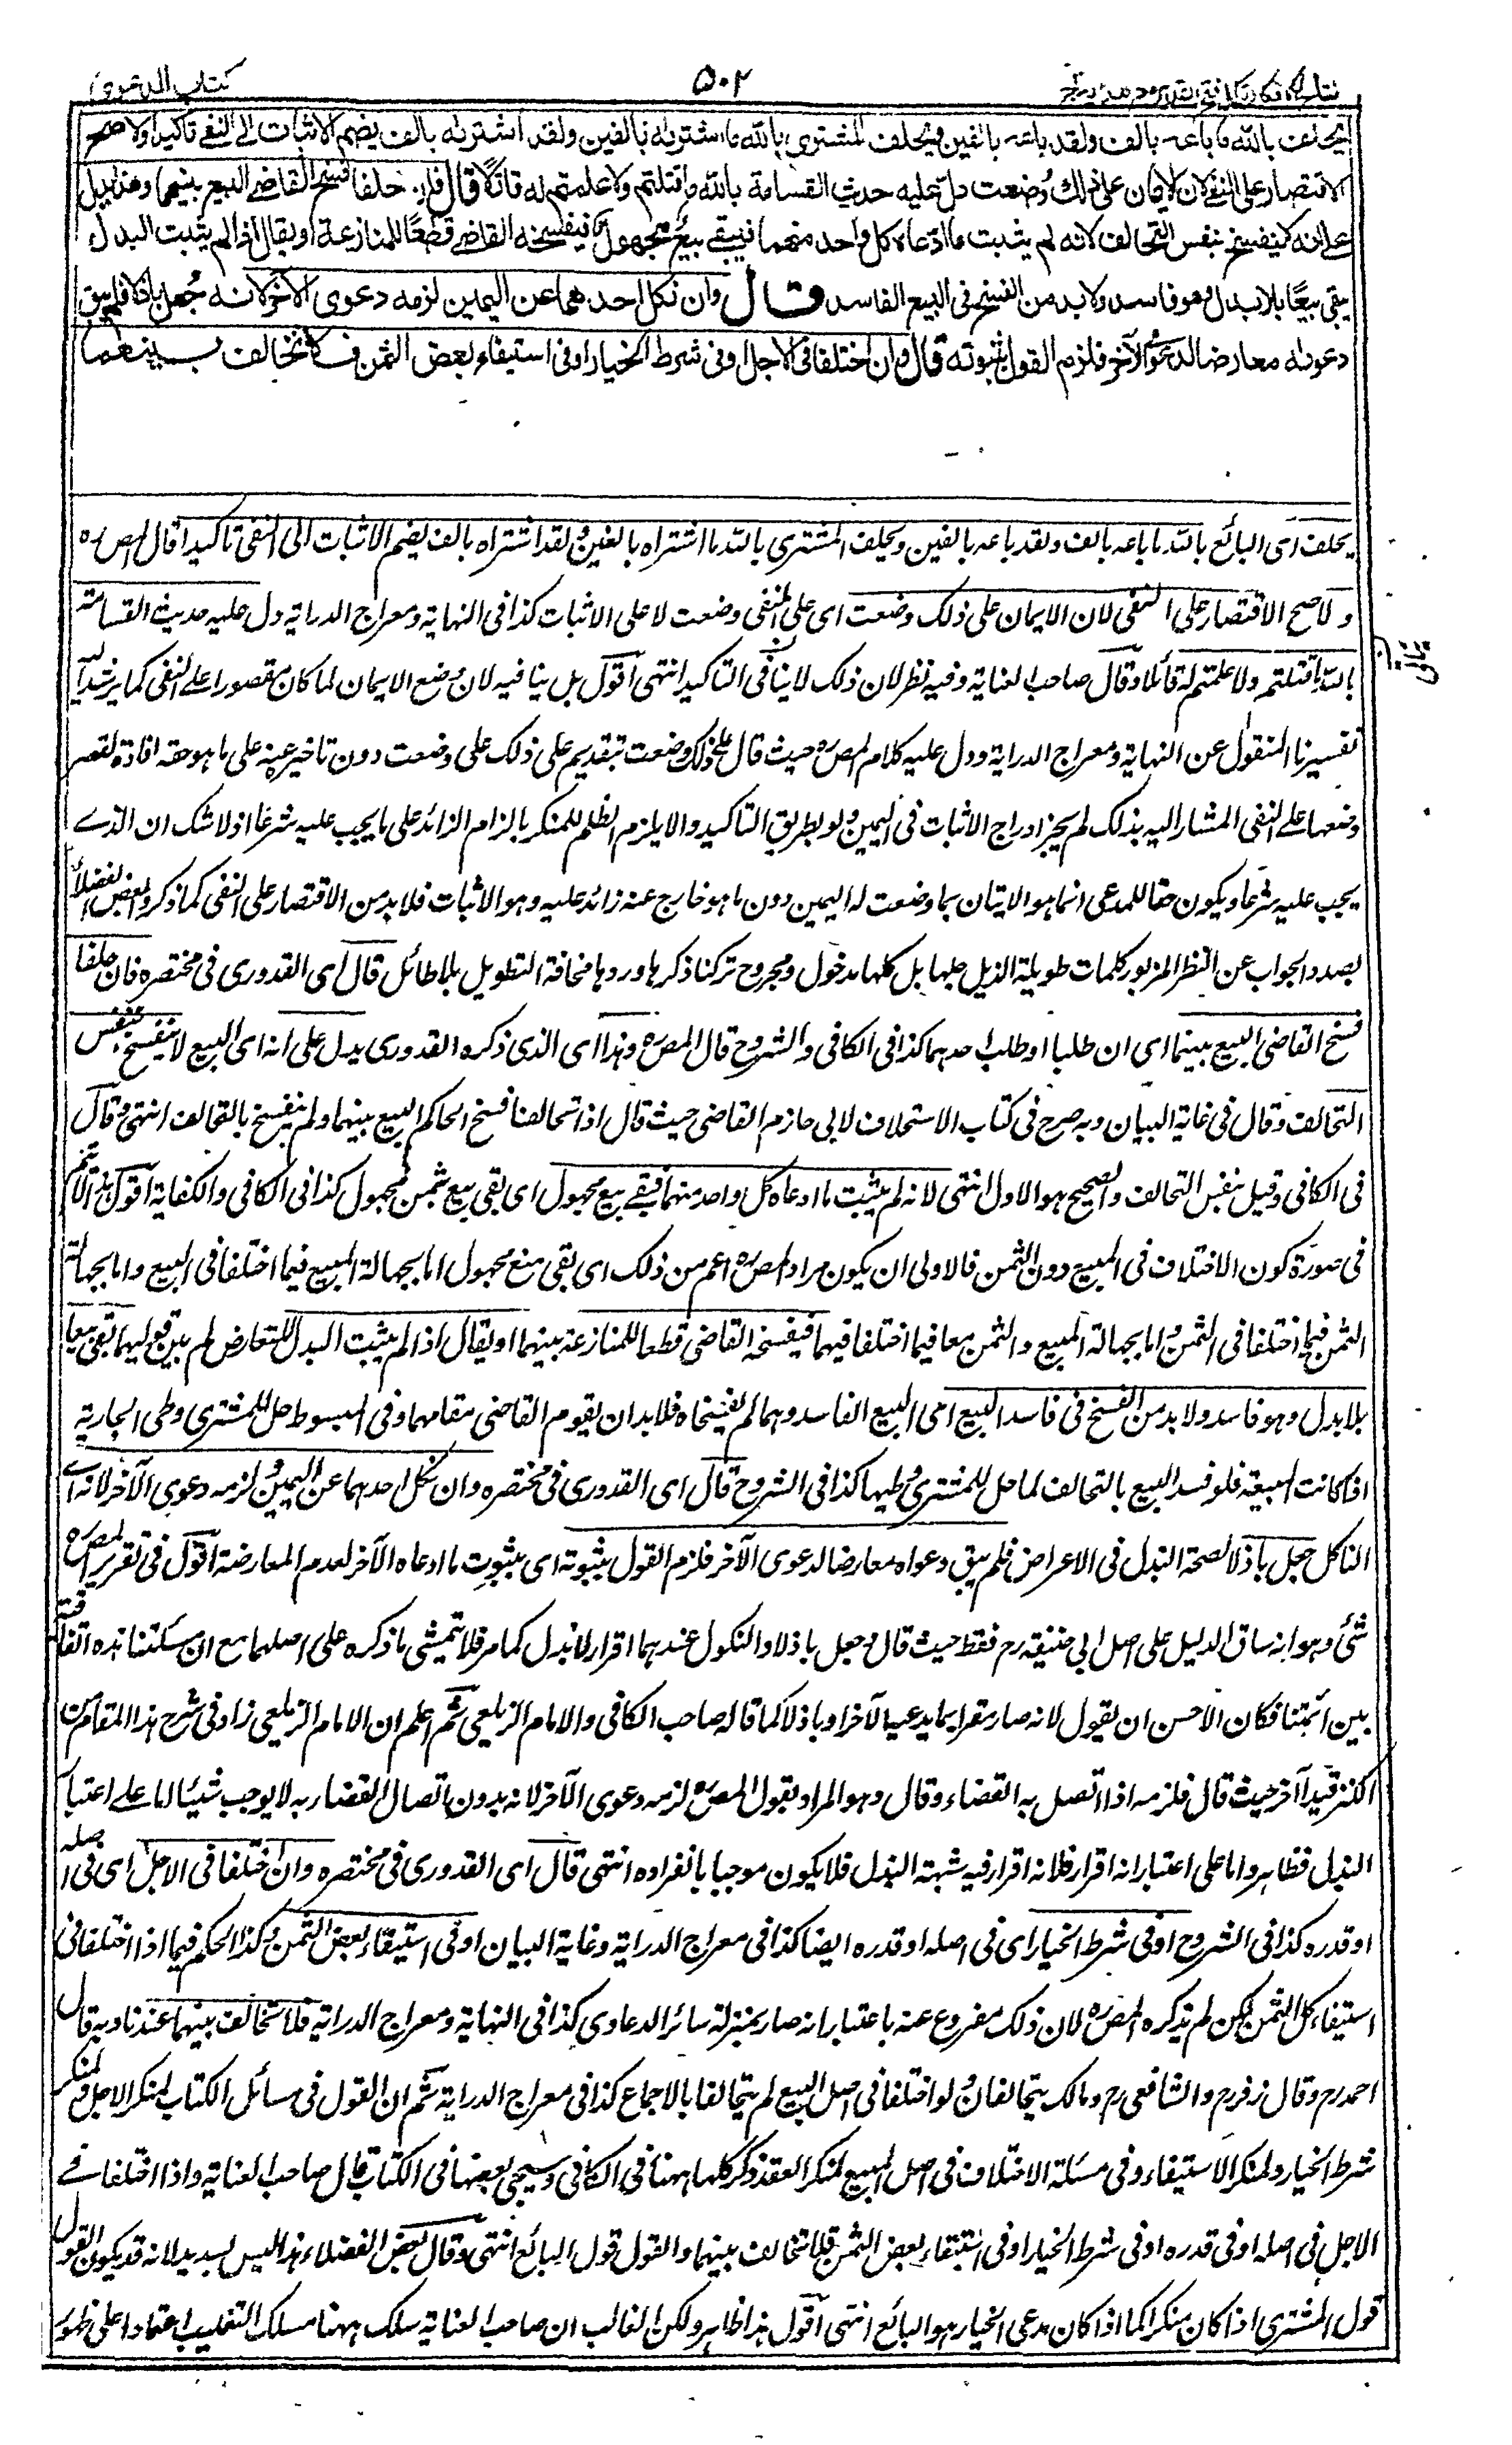 كتاب الدعوى
٥٠٢
يحلف بالله ما باعه بالف ولقد باعه بالفين ويحلف المشتري بالله ما اشتراه بالفين ولقد اشتراه بالف يضم الاثبات الى النفي تاكيدا والاصح
الاقتصار على النفي لان الايمان على ذلك وُضعت دلّ عليه حديث القسامة بالله ما قتلتم ولا علمتم له قاتلًا قال فان حلفا فسخ القاضي البيع بينهما وهذا يدل
على انه لا ينفسخ بنفس التحالف لانه لم يثبت ما ادّعاه كل واحد منهما فيبقى بيعٌ مجهول فيفسخه القاضي قطعًا للمنازعة او يقال اذا لم يثبت البدل
يبقى بيعًا بلا بدل وهو فاسد ولا بد من الفسخ فى البيع الفاسد قال وان نكل احدهما عن اليمين لزمه دعوى الآخر لانه جُعل باذلا فلم يبق
دعواه معارضا لدعوى الآخر فلزم القول بثبوته قال وان اختلفا فى الاجل او فى شرط الخيار او فى استيفاء بعض الثمن فلا تحالف بينهما
يحلف اى البائع بالله ما باعه بالف ولقد باعه بالفين ويحلف المشترى بالله ما اشتراه بالفين ولقد اشتراه بالف يضم الاثبات الى النفى تاكيدا قال المص ره
والاصح الاقتصار على النفى لان الايمان على ذلك وضعت اى على النفى وضعت لا على الاثبات كذا فى النهاية ومعراج الدراية دل عليه حديث القسامة
بالله ما قتلتم ولا علمتم له قاتلا وقال صاحب العناية وفيه نظر لان ذلك لا ينافى التاكيد انتهى اقول بل ينافيه لان وضع الايمان لما كان مقصورا على النفى كما يرشد اليه
تفسيرنا المنقول عن النهاية ومعراج الدراية ودل عليه كلام المص ره حيث قال على ذلك وضعت بتقديم على ذلك على وضعت دون تاخير عنه على ما هو حقه افادة لقصر
وضعها على النفى المشار اليه بذلك لم يجز ادراج الاثبات فى اليمين ولو بطريق التاكيد والا يلزم الظلم للمنكر بالزام الزائد على ما يجب عليه شرعا اذ لا شك ان الذى
يجب عليه شرعا ويكون حقا للمدعى انما هو الاتيان بما وضعت له اليمين دون ما هو خارج عنه زائد عليه وهو الاثبات فلا بد من الاقتصار على النفى كما ذكر وبعض الفضلاء
بصدد الجواب عن النظر المزبور كلمات طويلة الذيل جلها بل كلها مدخول ومجروح تركنا ذكرها وردها مخافة التطويل بلا طائل قال اى القدورى فى مختصره فان حلفا
فسخ القاضى البيع بينهما اى ان طلبا او طلب احدهما كذا فى الكافى والشروح قال المص ره وهذا اى الذى ذكره القدورى يدل على انه اى البيع لا ينفسخ بنفس
التحالف وقال فى غاية البيان وبه صرح فى كتاب الاستحلاف لابى حازم القاضى حيث قال اذا تحالفا فسخ الحاكم البيع بينهما ولم ينفسخ بالتحالف انتهى وقال
فى الكافى وقيل بنفس التحالف والصحيح هو الاول انتهى لانه لم يثبت ما ادعاه كل واحد منهما فيبقى بيع مجهول اى بقى بيع بثمن مجهول كذا فى الكافى والكفاية اقول هذا لا يتم
فى صورة كون الاختلاف فى المبيع دون الثمن فالاولى ان يكون مراد المص ره اعم من ذلك اى بقى بيع مجهول اما بجهالة المبيع فيما اختلفا فى المبيع واما بجهالة
الثمن فيما اختلفا فى الثمن واما بجهالة المبيع والثمن معا فيما اختلفا فيهما فيفسخه القاضى قطعا للمنازعة بينهما او يقال اذا لم يثبت البدل للتعارض لم يبق يبقى بيعا
بلا بدل وهو فاسد ولا بد من الفسخ فى فاسد البيع اى البيع الفاسد وهما لم يفسخاه فلا بد ان يقوم القاضى مقامهما وفى المبسوط حل للمشترى وطى الجارية
اذا كانت المبيعة فلو فسد البيع بالتحالف لما حل للمشترى وطيها كذا فى الشروح قال اى القدورى فى مختصره وان نكل احدهما عن اليمين لزمه دعوى الآخر لانه اى
الناكل جعل باذلا لصحة البذل فى الاعراض فلم يبق دعواه معارضا لدعوى الآخر فلزم القول بثبوته اى بثبوت ما ادعاه الآخر لعدم المعارضة اقول فى تقرير المص ره
شئ وهو انه ساق الدليل على اصل ابى حنيفة رح فقط حيث قال جعل باذلا والنكول عندهما اقرار لا بذل كما مر فلا يتمشى ما ذكره على اصلهما مع ان مسئلتنا هذه اتفاقية
بين ائمتنا فكان الاحسن ان يقول لانه صار مقرا بما يدعيه الآخر او باذلا كما قاله صاحب الكافى والامام الزيلعى ثم اعلم ان الامام الزيلعى زاد فى شرح هذا المقام من
الكنز قيدا آخر حيث قال فلزمه اذا اتصل به القضاء وقال وهو المراد بقول المص ره لزمه دعوى الآخر لانه بدون اتصال القضاء به لا يوجب شيئا اما على اعتبار
البذل فظاهر واما على اعتبار انه اقرار فلانه اقرار فيه شبهة البذل فلا يكون موجبا بانفراده انتهى قال اى القدورى فى مختصره وان اختلفا فى الاجل اى فى اصله
او قدره كذا فى الشروح او فى شرط الخيار اى فى اصله او قدره ايضا كذا فى معراج الدراية وغاية البيان او فى استيفاء بعض الثمن وكذا الحكم فيما اذا اختلفا فى
استيفاء كل الثمن لكن لم يذكره المص ره لان ذلك مفروغ عنه باعتبار انه صار بمنزلة سائر الدعاوى كذا فى النهاية ومعراج الدراية فلا تحالف بينهما عندنا وبه قال
احمد رح وقال زفر رح والشافعى رح ومالك يتحالفان ولو اختلفا فى اصل البيع لم يتحالفا بالاجماع كذا فى معراج الدراية ثم ان القول فى مسائل الكتاب لمنكر الاجل ولمنكر
شرط الخيار ولمنكر الاستيفاء وفى مسئلة الاختلاف فى اصل البيع لمنكر العقد ذكر كلها ههنا فى الكافى وسيجئ بعضها فى الكتاب قال صاحب العناية واذا اختلفا فى
الاجل فى اصله او فى قدره او فى شرط الخيار او فى استيفاء بعض الثمن فلا تحالف بينهما والقول قول البائع انتهى وقال بعض الفضلاء هذا ليس بسديد لانه قد يكون القول
قول المشترى اذا كان منكرا كما اذا كان مدعى الخيار هو البائع انتهى اقول هذا ظاهر ولكن الغالب ان صاحب العناية سلك ههنا مسلك التغليب اعتمادا على ظهور